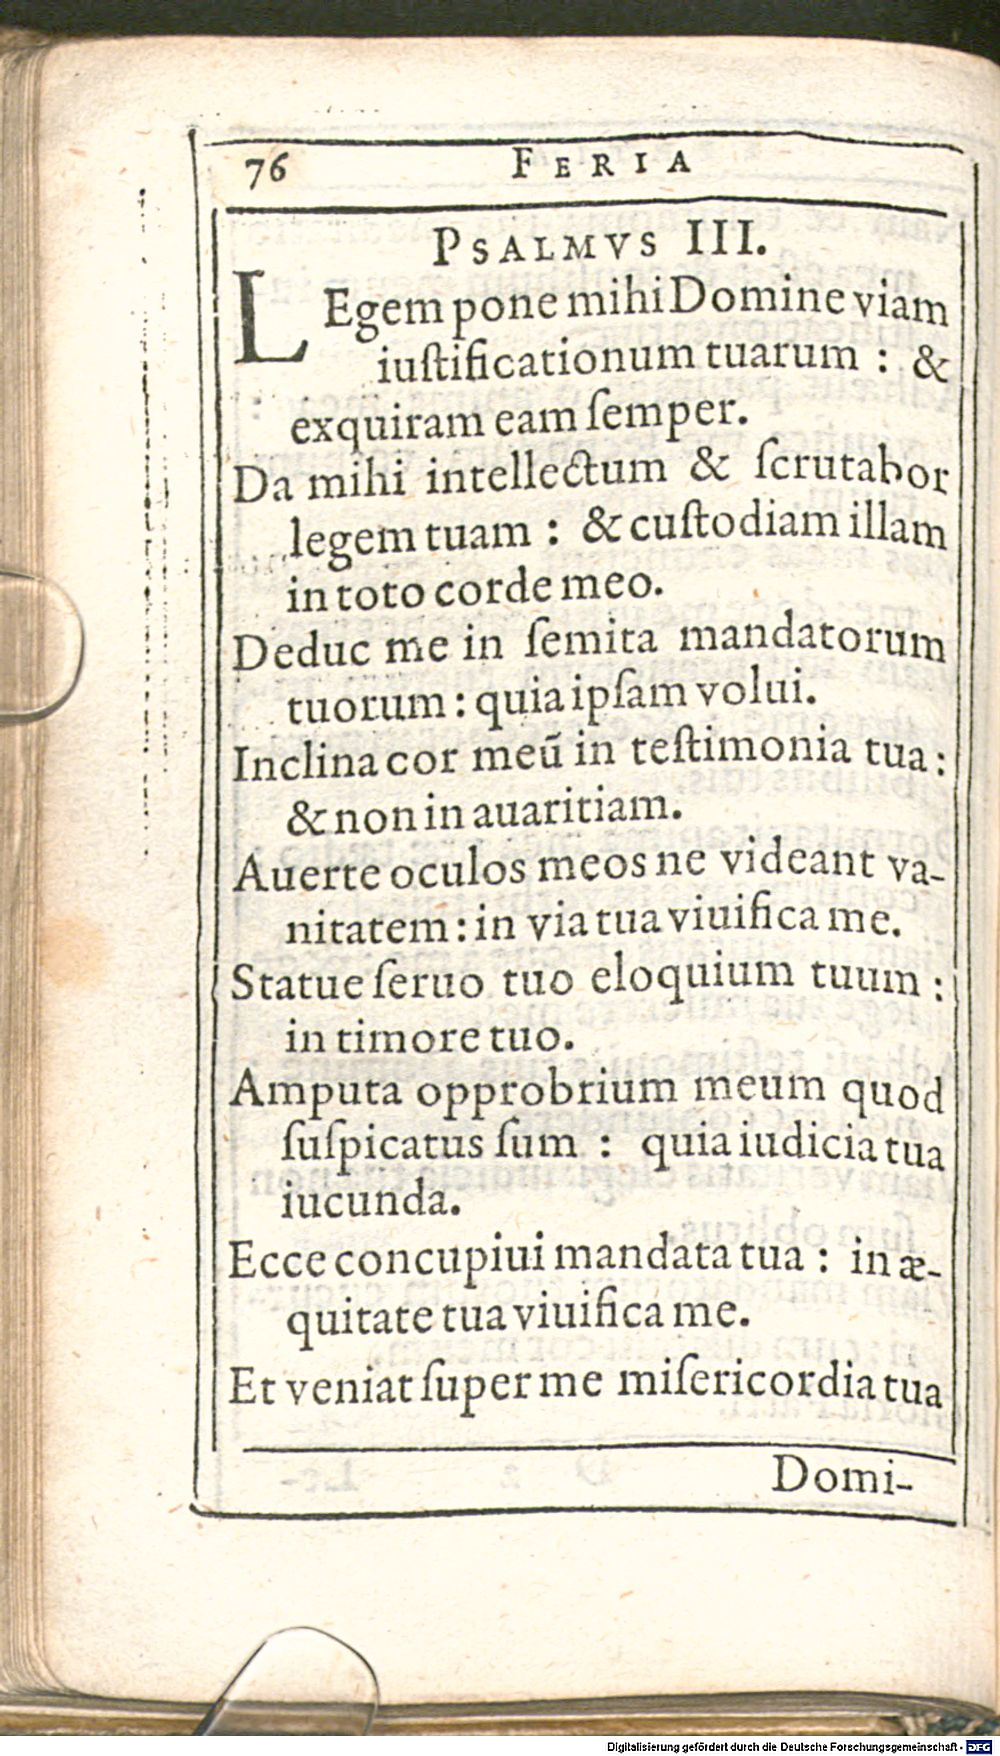 76 FERIA
PSALMVS III.
LEgem pone mihi Domine viam
iuſtificationum tuarum : &
exquiram eam ſemper.
Da mihi intellectum & ſcrutabor
legem tuam : & cuſtodiam illam
in toto corde meo.
Deduc me in ſemita mandatorum
tuorum : quia ipſam volui.
Inclina cor meū in teſtimonia tua :
& non in auaritiam.
Auerte oculos meos ne videant va-
nitatem : in via tua viuifica me.
Statue ſeruo tuo eloquium tuum :
in timore tuo.
Amputa opprobrium meum quod
ſuſpicatus ſum : quia iudicia tua
iucunda.
Ecce concupiui mandata tua : in æ-
quitate tua viuifica me.
Et veniat ſuper me miſericordia tua
Domi-
Digitalisierung gefördert durch die Deutsche Forschungsgemeinschaft - DFG